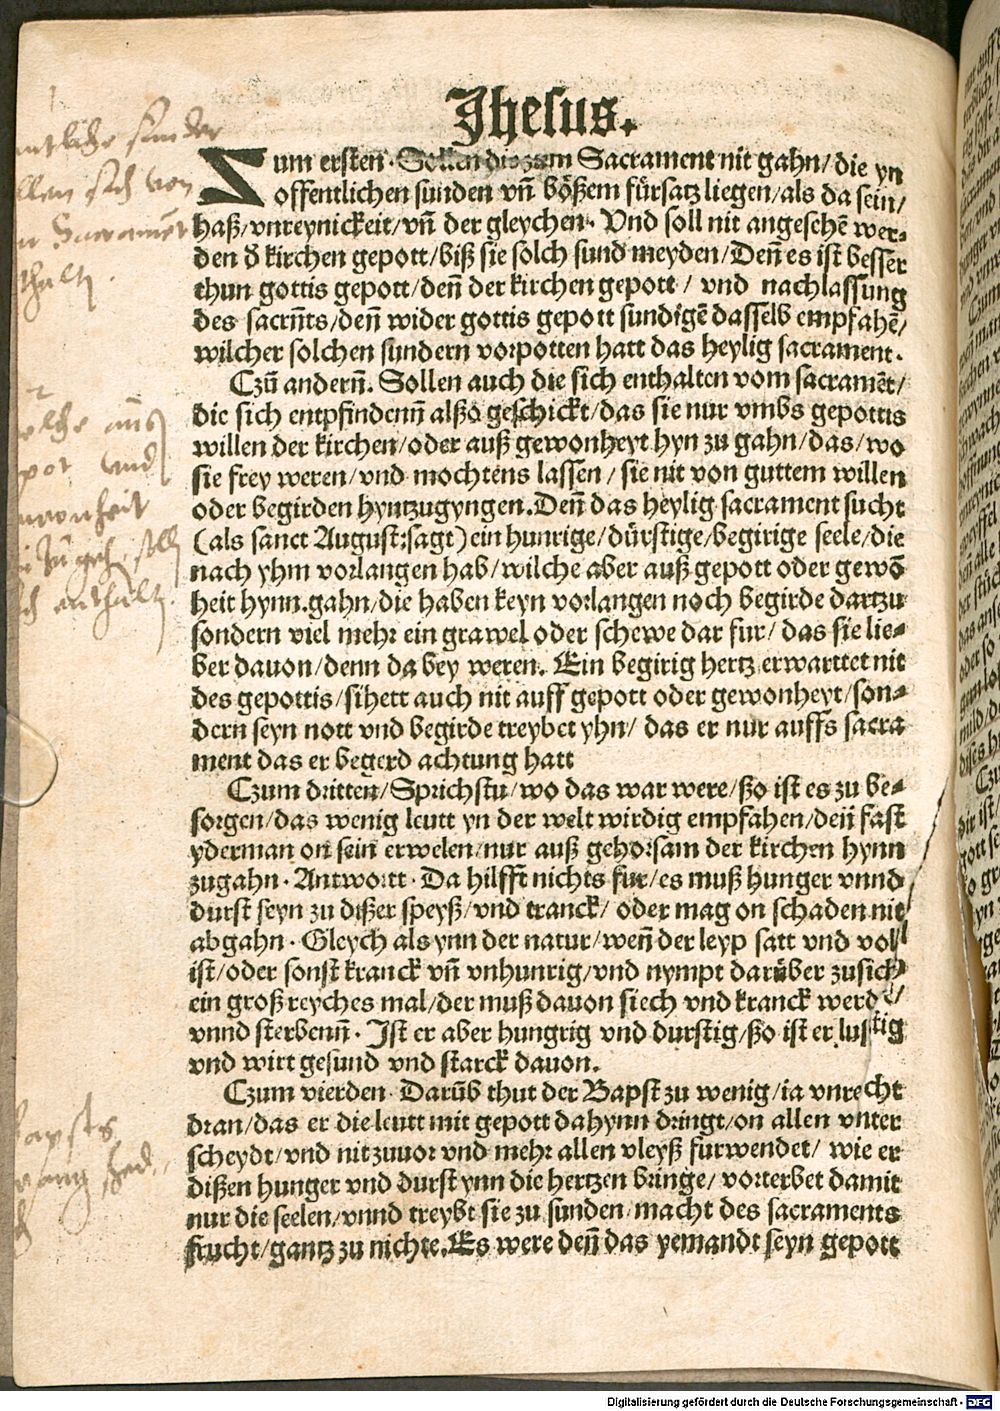 Jhesus.
Zum ersten. Sollen die zum Sacrament nit gahn/ die yn
offentlichen sunden vñ bößem fürsatz liegen/als da sein/
haß/vnreynickeit/vñ der gleychen. Vnd soll nit angesehẽ wer-
den d̃ kirchen gepott/biß sie solch sund meyden/Deñ es ist besser
thun gottis gepott/deñ der kirchen gepott/ vnd nachlassung
des sacrñts/deñ wider gottis gepott sundigẽ dasselb empfahẽ/
wilcher solchen sundern vorpotten hatt das heylig sacrament.
Czũ anderñ. Sollen auch die sich enthalten vom sacramẽt/
die sich entpfindenñ alßo geschickt/das sie nur vmbs gepottis
willen der kirchen/oder auß gewonheyt hyn zu gahn/das/wo
sie frey weren/vnd mochtens lassen/ sie nit von guttem willen
oder begirden hyntzugyngen. Deñ das heylig sacrament sucht
(als sanct August:sagt) ein hunrige/dürstige/begirige seele/die
nach yhm vorlangen hab/wilche aber auß gepott oder gewõ
heit hynn.gahn/die haben keyn vorlangen noch begirde dartzu
sondern viel mehr ein grawel oder schewe dar fur/ das sie lie-
ber dauon/denn da bey weren. Ein begirig hertz erwarttet nit
des gepottis/sihett auch nit auff gepott oder gewonheyt/son-
dern seyn nott vnd begirde treybet yhn/ das er nur auffs sacra
ment das er begerd achtung hatt
Czum dritten/Sprichstu/wo das war were/ßo ist es zu be-
sorgen/das wenig leutt yn der welt wirdig empfahen/deñ fast
yderman on sein erwelen/nur auß gehorsam der kirchen hynn
zugahn. Antwortt. Da hilfft nichts fur/es muß hunger vnnd
durst seyn zu dißer speyß/vnd tranck/ oder mag on schaden nit
abgahn. Gleych als ynn der natur/weñ der leyp satt vnd voll
ist/oder sonst kranck vñ vnhunrig/vnd nympt darüber zusich
ein groß reyches mal/der muß dauon siech vnd kranck werdẽ/
vnnd sterbenñ. Jst er aber hungrig vnd durstig/ßo ist er lustig
vnd wirt gesund vnd starck dauon.
Czum vierden. Darũb thut der Bapst zu wenig/ia vnrecht
dran/das er die leutt mit gepott dahynn dringt/on allen vnter
scheydt/vnd nit zuuor vnd mehr allen vleyß furwendet/ wie er
dißen hunger vnd durst ynn die hertzen bringe/ vorterbet damit
nur die seelen/vnnd treybt sie zu sunden/macht des sacraments
frucht/gantz zu nichte. Es were deñ das yemandt seyn gepott
Digitalisierung gefördert durch die Deutsche Forschungsgemeinschaft - DFG